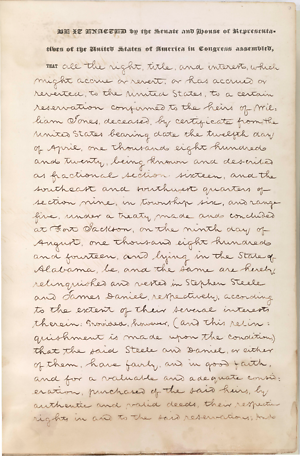 BE IT ENACTED by the Senate and House of Representa-
tives of the United States of America in Congress assembled,
THAT all the right, title, and interest, which
might accrue or revert, or has accrued or
reverted, to the United States, to a certain
reservation confirmed to the heirs of Wil-
liam Jones, deceased, by certificate from the
United States bearing date the twelfth day
of April, one thousand eight hundred
and twenty, being known and described
as fractional section sixteen, and the
southeast and southwest quarters of
section nine, in township six, and range
five, under a treaty made and concluded
at Fort Jackson, on the ninth day of
August, one thousand eight hundred
and fourteen, and lying in the State of
Alabama, be, and the same are hereby
relinquished and vested in Stephen Steele
and James Daniel, respectively, according
to the extent of their several interests
therein: Provided, however, (and this relin-
quishment is made upon the condition)
that the said Steele and Daniel, or either
of them, have fairly, and in good faith,
and for a valuable and adequate consid-
eration, purchased of the said heirs, by
authentic and valid deeds, their respective
rights in and to the said reservations;